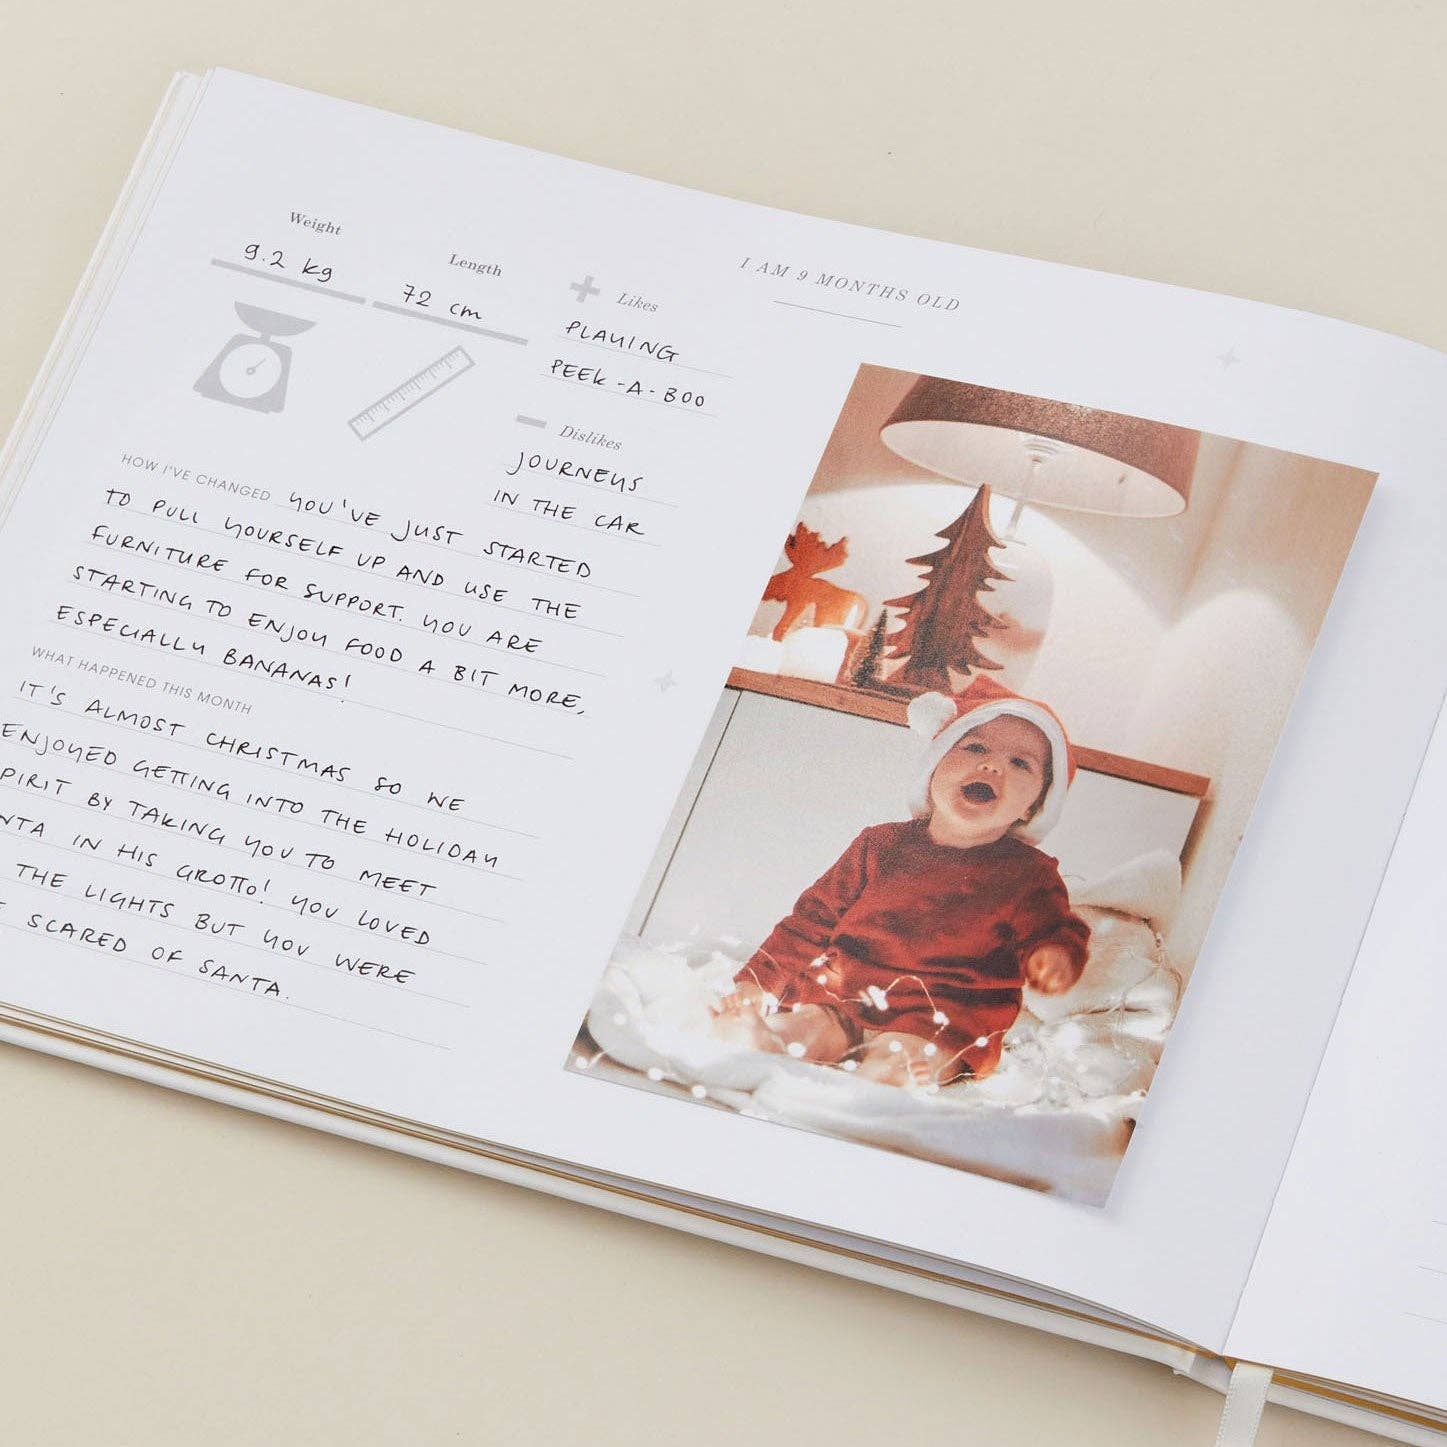 I AM 9 MONTHS OLD
Weight
9.2 kg
Length
72 cm
Likes
PLAYING
PEEK-A-BOO
Dislikes
JOURNEYS
IN THE CAR
HOW I'VE CHANGED YOU'VE JUST STARTED
TO PULL YOURSELF UP AND USE THE
FURNITURE FOR SUPPORT. YOU ARE
STARTING TO ENJOY FOOD A BIT MORE,
ESPECIALLY BANANAS!
WHAT HAPPENED THIS MONTH
IT'S ALMOST CHRISTMAS SO WE
ENJOYED GETTING INTO THE HOLIDAY
PIRIT BY TAKING YOU TO MEET
NTA IN HIS GROTTO! YOU LOVED
THE LIGHTS BUT YOU WERE
SCARED OF SANTA.